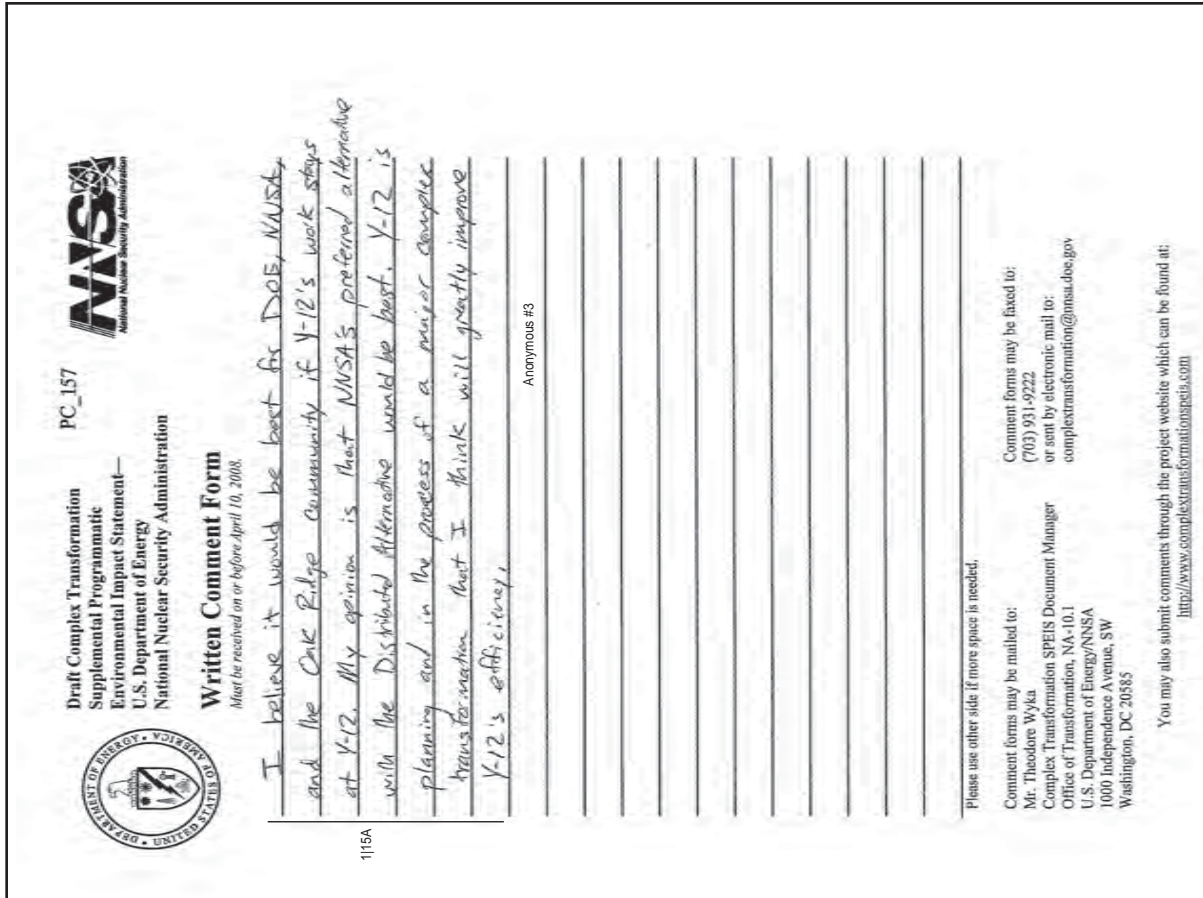 Draft Complex Transformation
Supplemental Programmatic
Environmental Impact Statement—
U.S. Department of Energy
National Nuclear Security Administration
PC_157
NNSA
National Nuclear Security Administration
DEPARTMENT OF ENERGY • UNITED STATES OF AMERICA
Written Comment Form
Must be received on or before April 10, 2008.
I believe it would be best for DOE, NNSA,
and the Oak Ridge community if Y-12's work stays
at Y-12. My opinion is that NNSA's preferred alternative
with the Distributed Alternative would be best. Y-12 is
planning and in the process of a major complex
transformation that I think will greatly improve
Y-12's efficiency.
1|15A
Anonymous #3
Please use other side if more space is needed.
Comment forms may be mailed to:
Mr. Theodore Wyka
Complex Transformation SPEIS Document Manager
Office of Transformation, NA-10.1
U.S. Department of Energy/NNSA
1000 Independence Avenue, SW
Washington, DC 20585
Comment forms may be faxed to:
(703) 931-9222
or sent by electronic mail to:
complextransformation@nnsa.doe.gov
You may also submit comments through the project website which can be found at:
http://www.complextransformationspeis.com